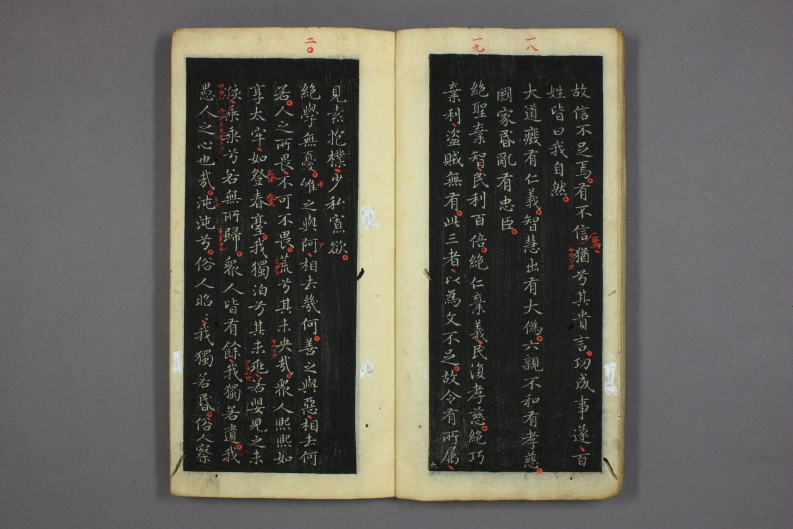 一八
一九
故信不足焉有不信猶兮其貴言功成事遂百
姓皆曰我自然
大道廢有仁義智慧出有大僞六親不和有孝慈
國家昏亂有忠臣
絕聖棄智民利百倍絕仁棄義民復孝慈絕巧
棄利盜賊無有此三者以為文不足故令有所屬
二〇
見素抱樸少私寡欲
絕學無憂唯之與阿相去幾何善之與惡相去何
若人之所畏不可不畏荒兮其未央哉衆人熙熙如
享太牢如登春臺我獨泊兮其未兆若嬰兒之未
孩乘乘兮若無所歸衆人皆有餘我獨若遺我
愚人之心也哉沌沌兮俗人昭〻我獨若昏俗人察